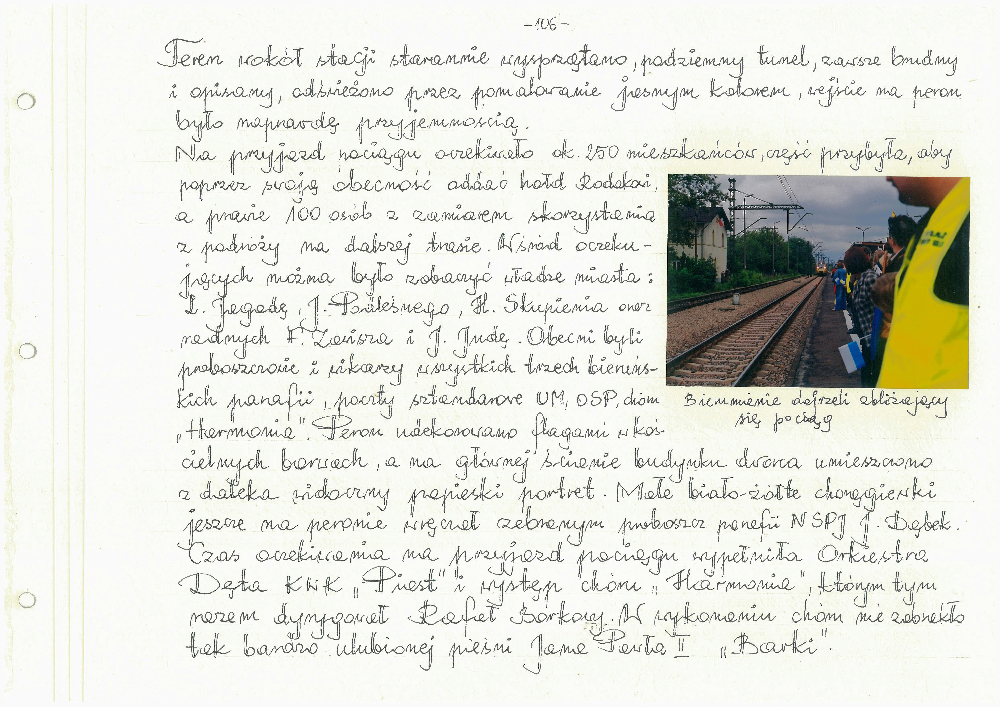 -106-
Teren wokół stacji starannie wysprzątano, podziemny tunel, zawsze brudny
i opisany, odświeżono przez pomalowanie jasnym kolorem, wejście na peron
było naprawdę przyjemnością.
Na przyjazd pociągu oczekiwało ok. 250 mieszkańców, część przybyła, aby
poprzez swoją obecność oddać hołd Rodakowi,
a prawie 100 osób z zamiarem skorzystania
z podróży na dalszej trasie. Wśród oczeku-
jących można było zobaczyć władze miasta:
L. Jagodę, J. , H. Skupienia oraz
radnych F. Zawisza i J. Judę. Obecni byli
proboszczowie i wikarzy wszystkich trzech bieruńs-
kich parafii, poczty sztandarowe UM, OSP, chóru
„Harmonia". Peron udekorowano flagami w koś-
cielnych barwach, a na głównej ścianie budynku dworca umieszczono
z daleka widoczny papieski portret. Małe biało-żółte chorągiewki
jeszcze na peronie wręczał zebranym proboszcz parafii NSPJ J. Dąbek.
Czas oczekiwania na przyjazd pociągu wypełniła Orkiestra
Dęta KWK „Piast" i występ chóru „Harmonia", którym tym
razem dyrygował Rafał . W wykonaniu chóru nie zabrakło
tak bardzo ulubionej pieśni Jana Pawła II „Barki".
Bierunianie dojrzeli zbliżający
się pociąg